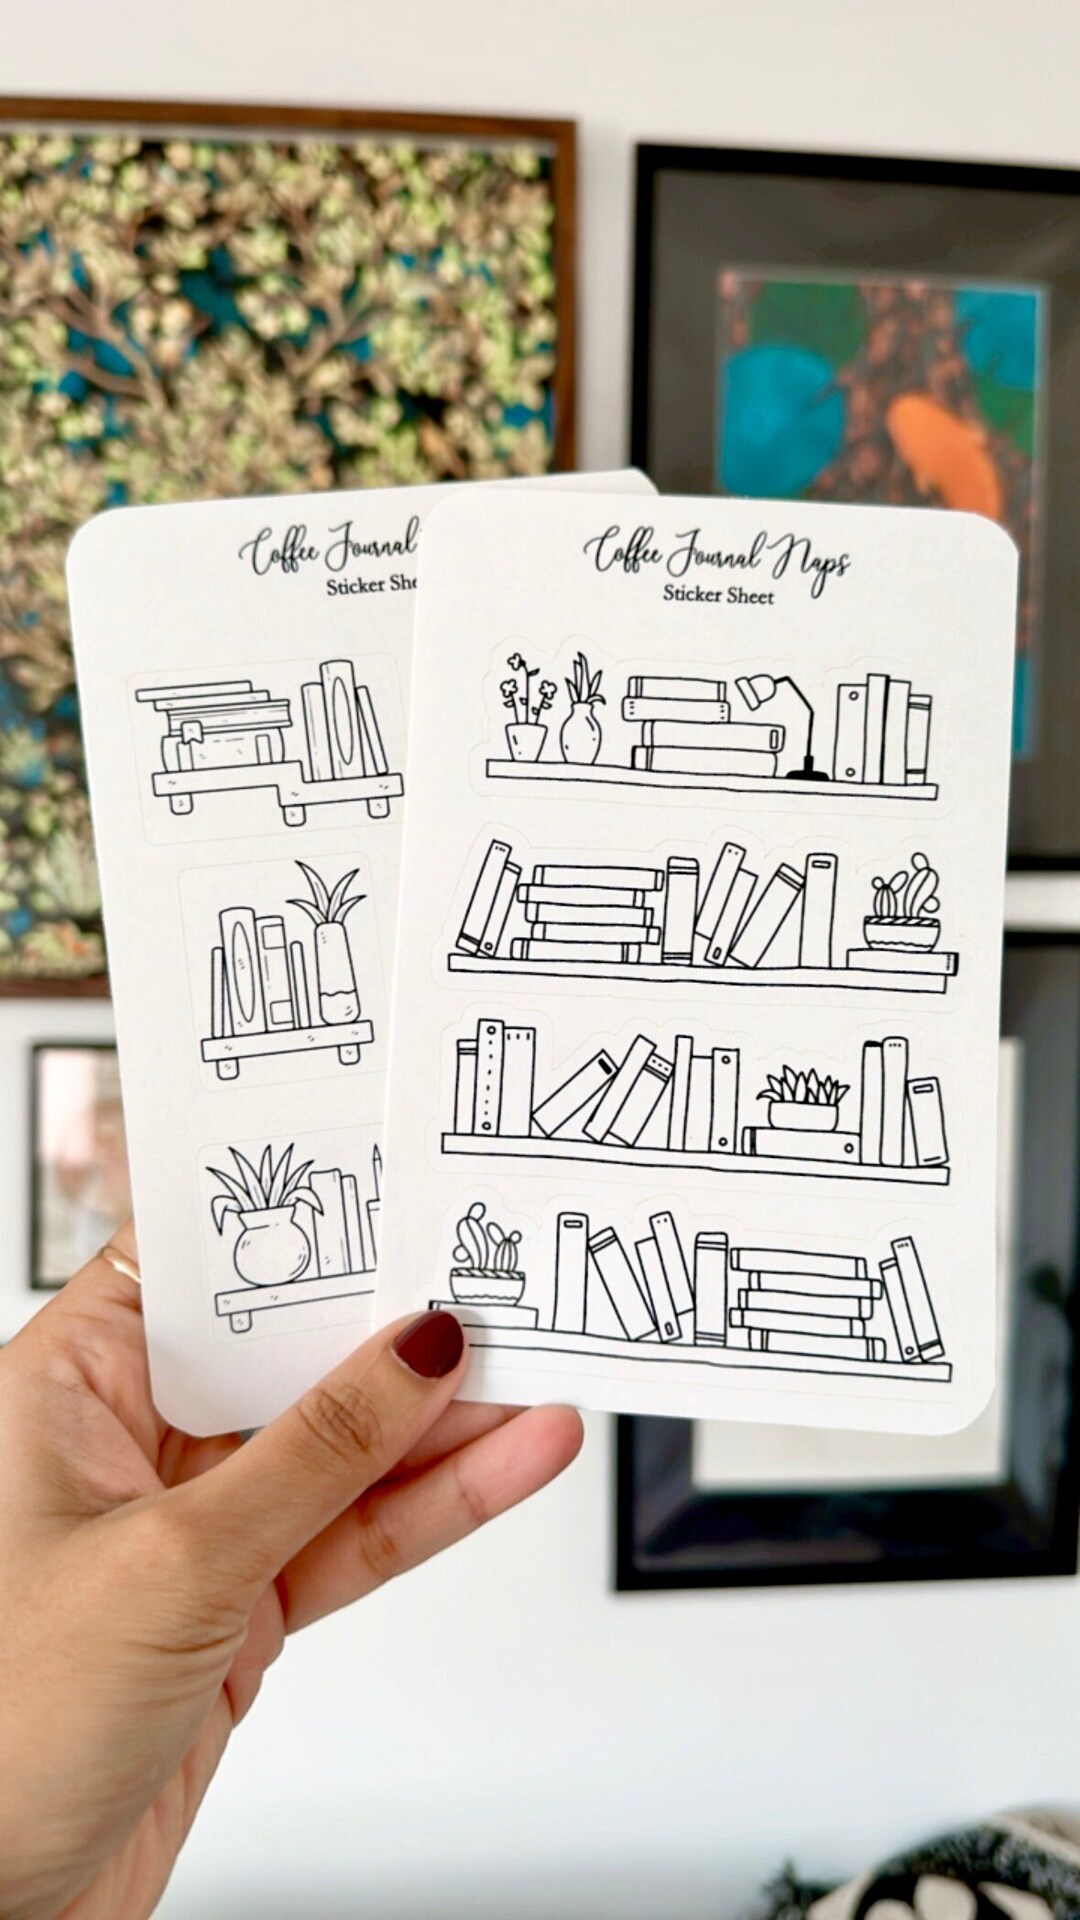 Coffee Journal
Sticker She
Coffee Journal Naps
Sticker Sheet